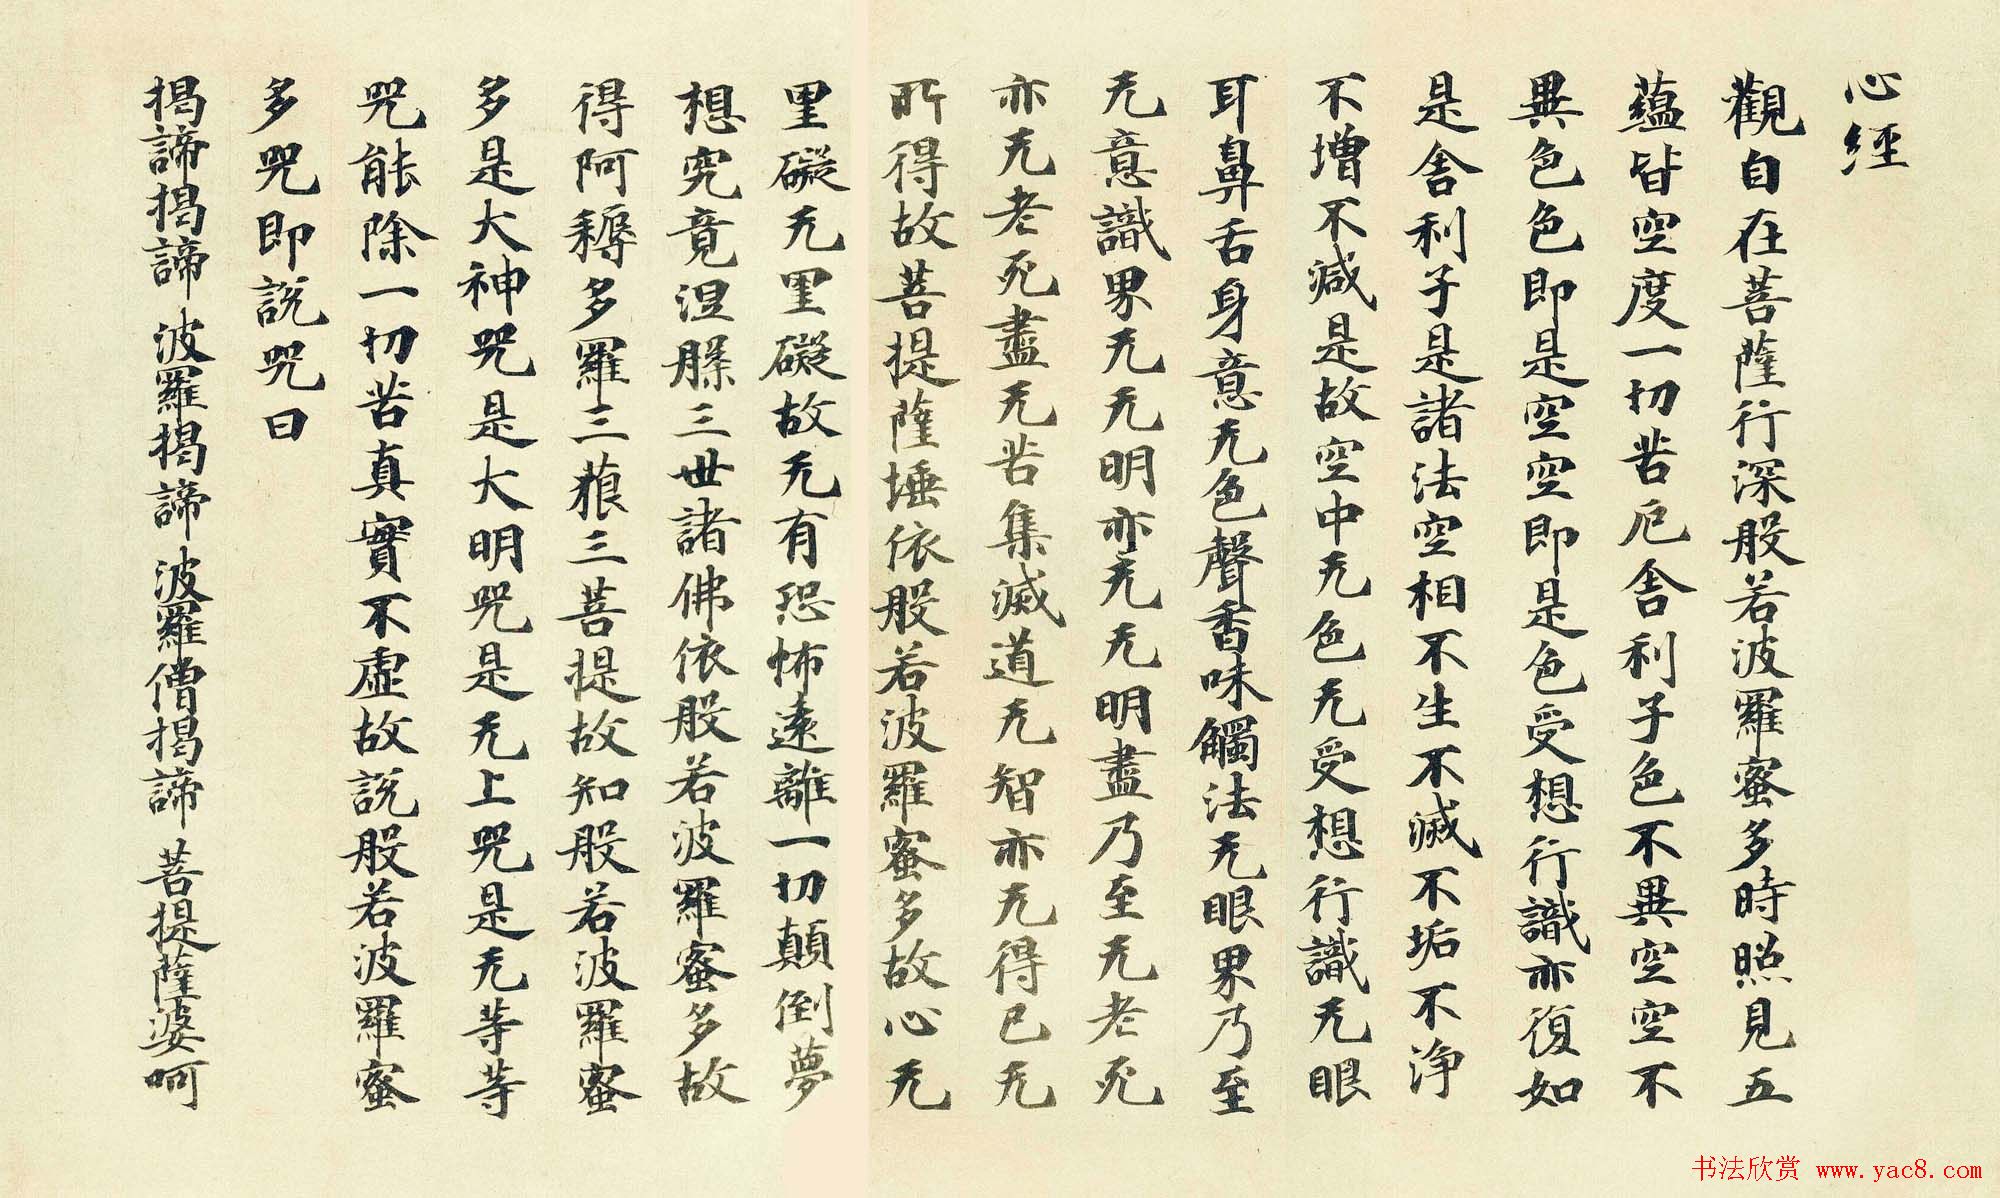 心經
觀自在菩薩行深般若波羅蜜多時照見五
蘊皆空度一切苦厄舍利子色不異空空不
異色色即是空空即是色受想行識亦復如
是舍利子是諸法空相不生不滅不垢不淨
不增不減是故空中无色无受想行識无眼
耳鼻舌身意无色聲香味觸法无眼界乃至
无意識界无无明亦无无明盡乃至无老死
亦无老死盡无苦集滅道无智亦无得已无
所得故菩提薩埵依般若波羅蜜多故心无
罣礙无罣礙故无有恐怖遠離一切顛倒夢
想究竟涅槃三世諸佛依般若波羅蜜多故
得阿耨多羅三藐三菩提故知般若波羅蜜
多是大神咒是大明咒是无上咒是无等等
咒能除一切苦真實不虛故說般若波羅蜜
多咒即說咒曰
揭諦揭諦 波羅揭諦 波羅僧揭諦 菩提薩婆呵
书法欣赏 www.yac8.com